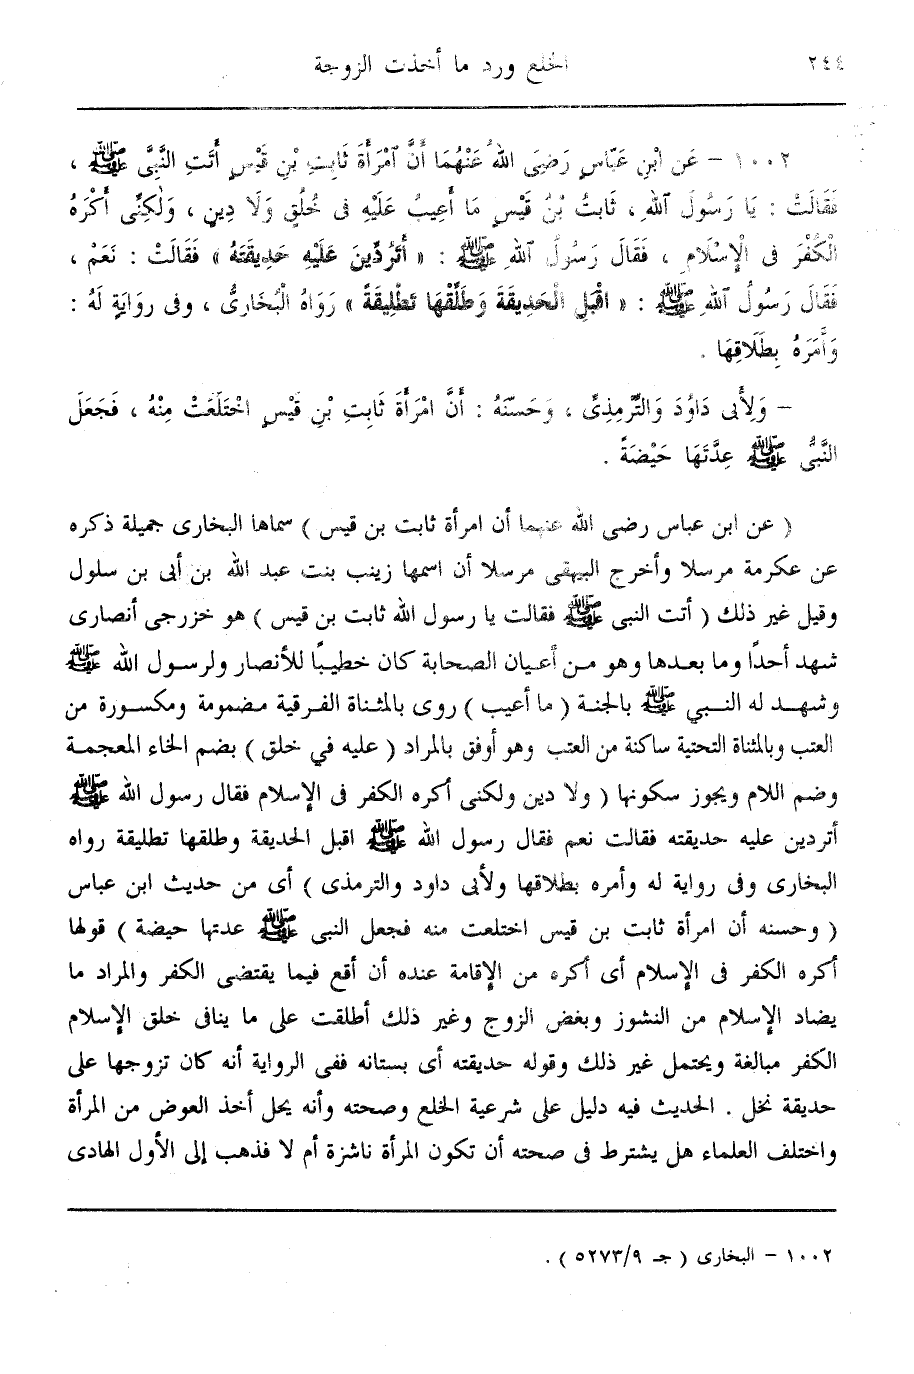 ٢٤٤
الخلع ورد ما أخذت الزوجة
١٠٠٢ – عَن ابْنِ عَبَّاسٍ رَضِيَ اللهُ عَنْهُمَا أَنَّ آمْرَأَةَ ثَابِتِ بْنِ قَيْسٍ أَتَتِ النَّبِيَّ ﷺ ،
فَقَالَتْ : يَا رَسُولَ آللهِ ، ثَابِتُ بْنُ قَيْسٍ مَا أَعِيبُ عَلَيْهِ فِى خُلُقٍ وَلَا دِينٍ ، وَلٰكِنِّى أَكْرَهُ
الْكُفْرَ فِى الْإِسْلَامِ ، فَقَالَ رَسُولُ آللهِ ﷺ : « أَتَرُدِّينَ عَلَيْهِ حَدِيقَتَهُ » فَقَالَتْ : نَعَمْ ،
فَقَالَ رَسُولُ آللهِ ﷺ : « اقْبَلِ الْحَدِيقَةَ وَطَلِّقْهَا تَطْلِيقَةً » رَوَاهُ الْبُخَارِىُّ ، وفى روَايَةٍ لَهُ :
وَأَمَرَهُ بِطَلَاقِهَا .
– وَلِأَبِى دَاوُدَ وَالتِّرْمِذِىِّ ، وَحَسَّنَهُ : أَنَّ امْرَأَةَ ثَابِتِ بْنِ قَيْسٍ اخْتَلَعَتْ مِنْهُ ، فَجَعَلَ
النَّبِىُّ ﷺ عِدَّتَهَا حَيْضَةً .
( عن ابن عباس رضى الله عنهما أن امرأة ثابت بن قيس ) سماها البخارى جميلة ذكره
عن عكرمة مرسلا وأخرج البيهقى مرسلا أن اسمها زينب بنت عبد الله بن أبى بن سلول
وقيل غير ذلك ( أتت النبى ﷺ فقالت يا رسول الله ثابت بن قيس ) هو خزرجى أنصارى
شهد أحدًا وما بعدها وهو من أعيان الصحابة كان خطيبًا للأنصار ولرسول الله ﷺ
وشهد له النبي ﷺ بالجنة ( ما أعيب ) روى بالمثناة الفرقية مضمومة ومكسورة من
العتب وبالمثناة التحتية ساكنة من العتب وهو أوفق بالمراد ( عليه في خلق ) بضم الخاء المعجمة
وضم اللام ويجوز سكونها ( ولا دين ولكنى أكره الكفر فى الإسلام فقال رسول الله ﷺ
أتردين عليه حديقته فقالت نعم فقال رسول الله ﷺ اقبل الحديقة وطلقها تطليقة رواه
البخارى وفى رواية له وأمره بطلاقها ولأبى داود والترمذى ) أى من حديث ابن عباس
( وحسنه أن امرأة ثابت بن قيس اختلعت منه فجعل النبى ﷺ عدتها حيضة ) قولها
أكره الكفر فى الإسلام أى أكره من الإقامة عنده أن أقع فيما يقتضى الكفر والمراد ما
يضاد الإسلام من النشوز وبغض الزوج وغير ذلك أطلقت على ما ينافى خلق الإسلام
الكفر مبالغة ويحتمل غير ذلك وقوله حديقته أى بستانه ففى الرواية أنه كان تزوجها على
حديقة نخل . الحديث فيه دليل على شرعية الخلع وصحته وأنه يحل أخذ العوض من المرأة
واختلف العلماء هل يشترط فى صحته أن تكون المرأة ناشزة أم لا فذهب إلى الأول الهادى
١٠٠٢ – البخارى ( جـ ٥٢٧٣/٩ ) .